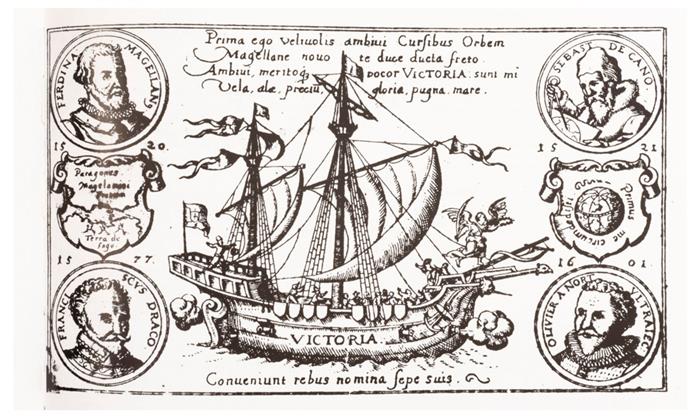 Prima ego velivolis ambivi Cursibus Orbem
Magellane novo te duce ducta freto
Ambivi, meritoq₃ vocor VICTORIA: sunt mi
Vela, alæ, preciū, gloria, pugna, mare.
FERDINĀ MAGELLANꝰ
SEBAST DE CANO
15 20.
15 21
Magelanni
Fretum
Terra de
fogo
Primus
me circumdedisti
15 77.
16 01.
FRANCISCVS DRACO
OLIVIER A NORT
VICTORIA
Conveniunt rebus nomina sepe suis.